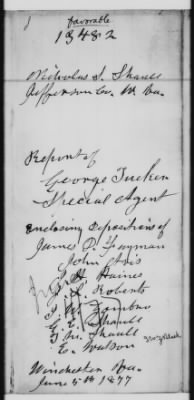 favorable
13482
Nicholas S. Shaull
Jefferson Co. W. Va.
Report of
George Tucker
Special Agent
enclosing depositions of
James P. Fuyman
John Avis
Haines
Roberts
Shaull
Shaull
E. Watson
Winchester Va.
June 5th 1877